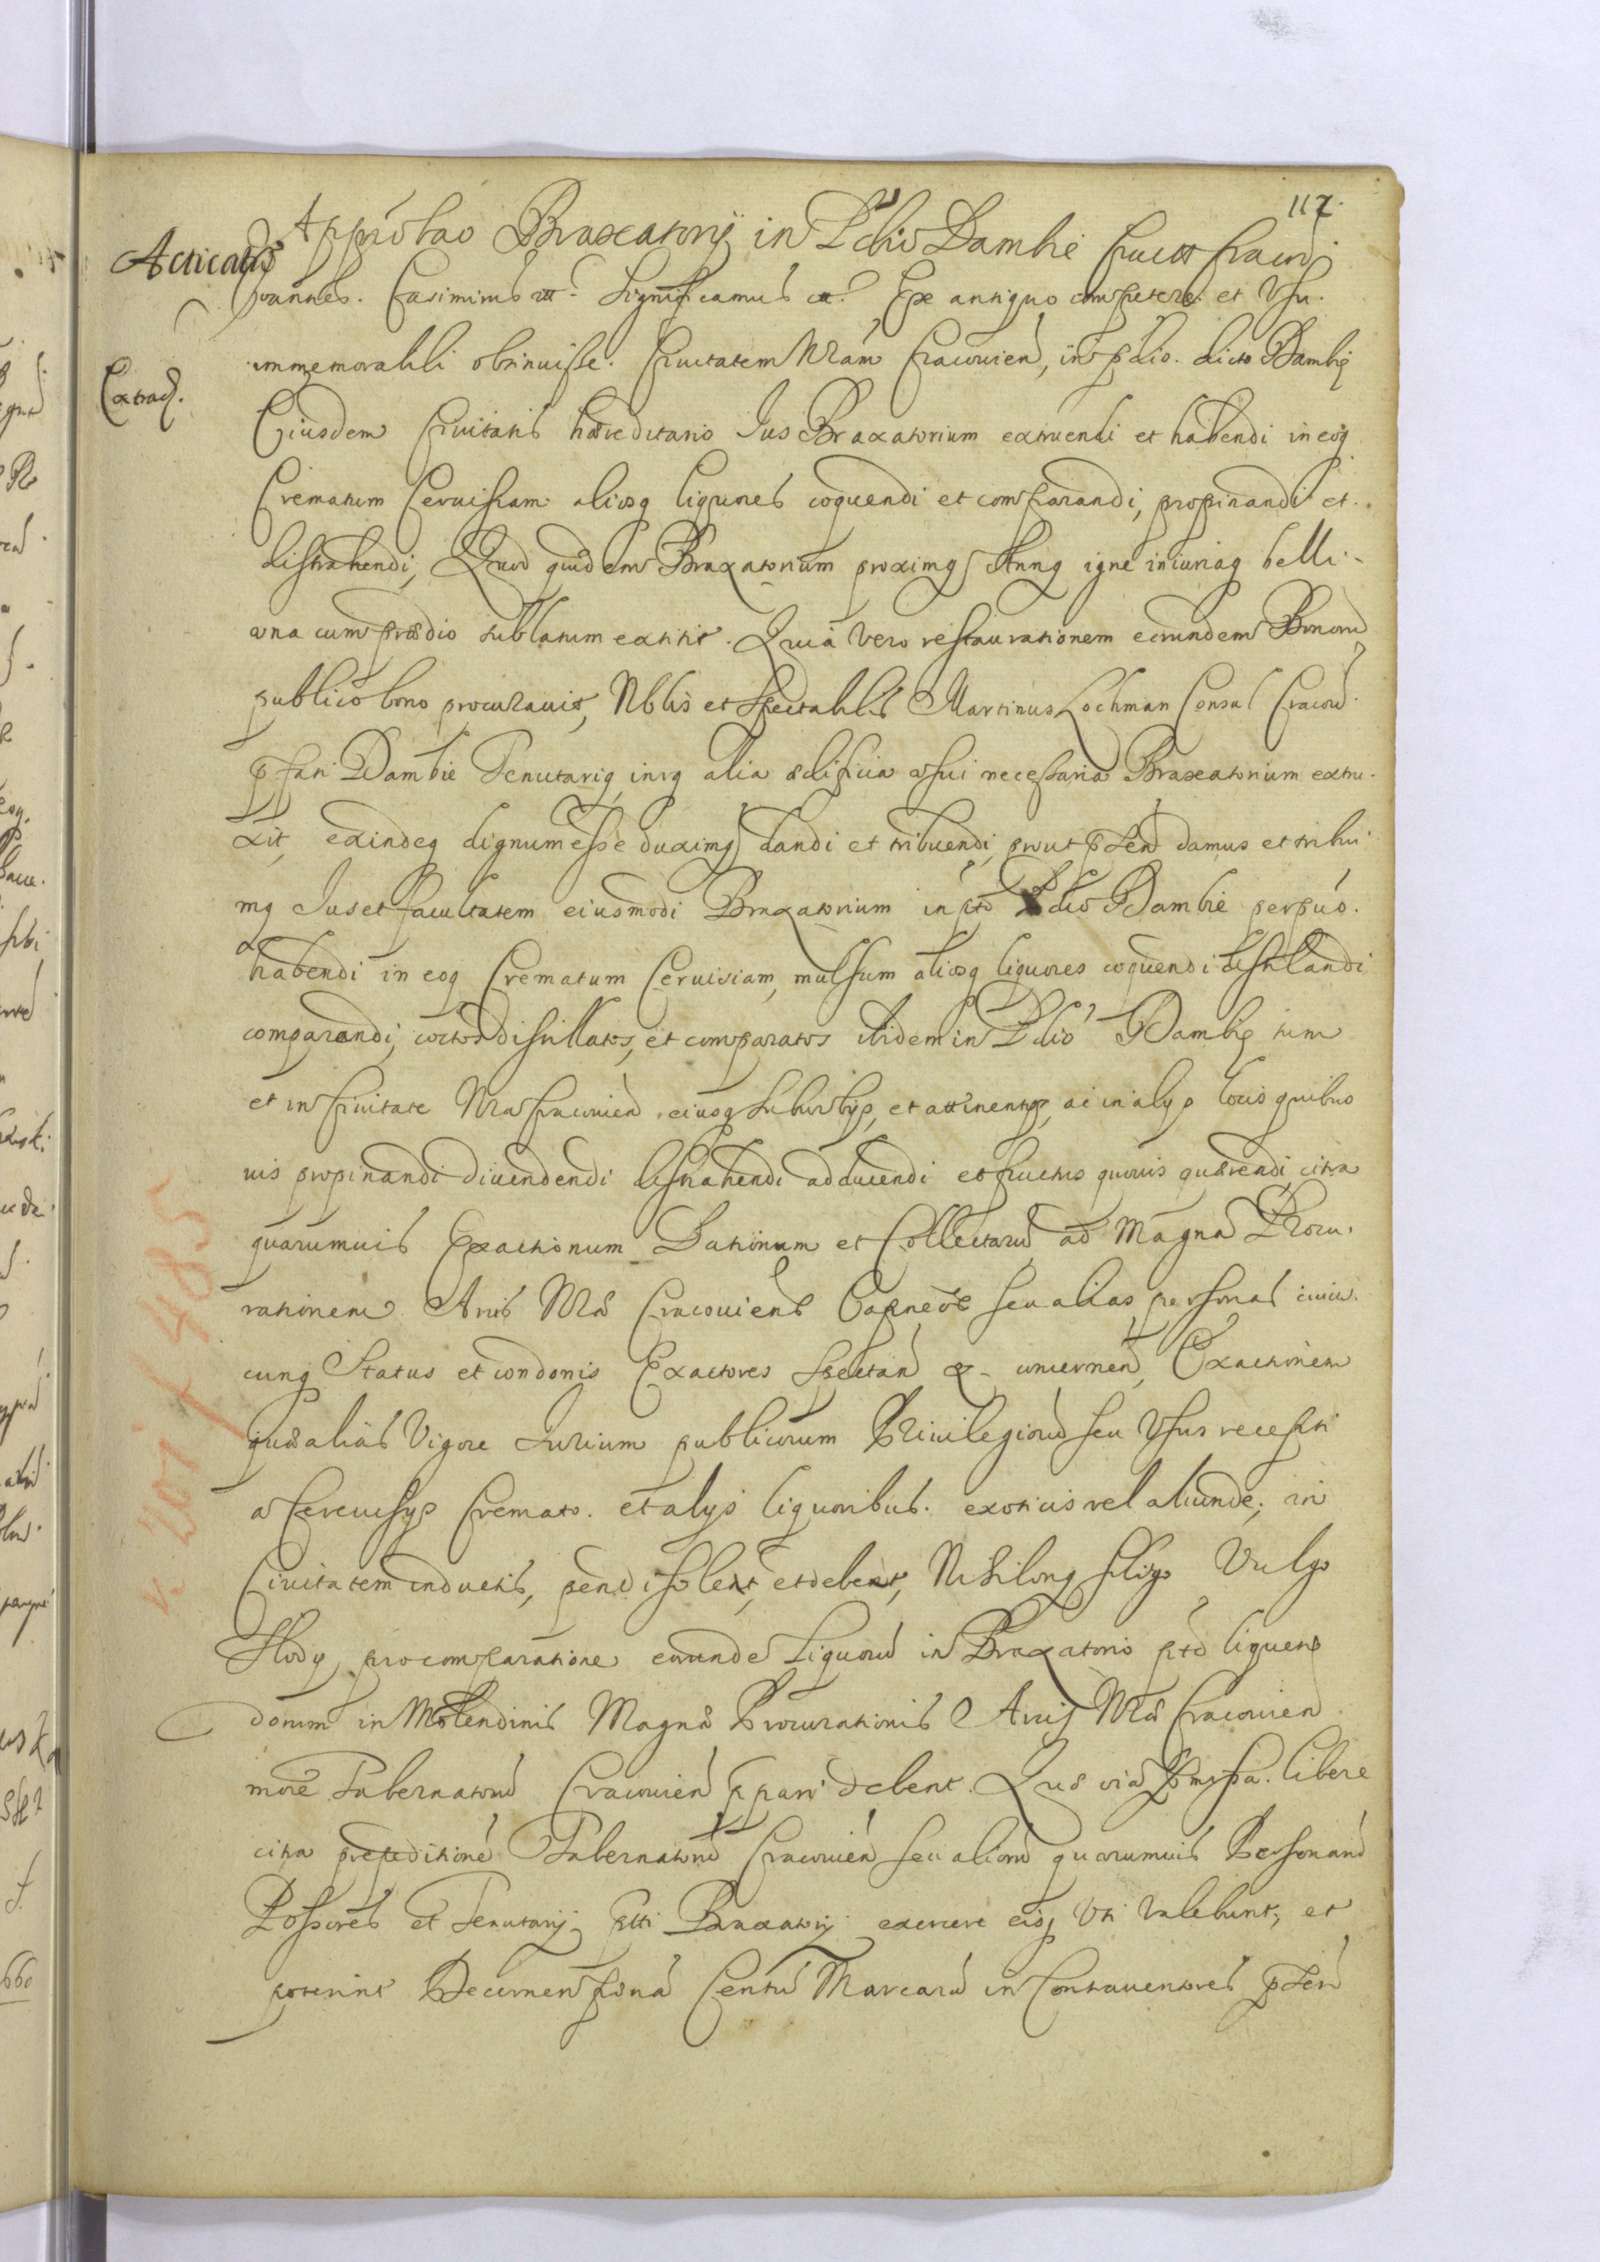 117.
Approbao Braxatorij in Pdio Dambie Civittt Cracov
Acticata
Joannes. Casimirus ett. Significamus ett. Ex antiquo competere et Vsu
immemorabili obtinuisse. Civitatem Nram Cracouien, in pdio. dicto Dambie
Extrad.
Eiusdem Ciuitatis haereditario Jus Braxatorium extruendi et habendi in eoq
Crematum Ceruisiam aliosq liquores coquendi et comparandi, propinandi et
distrahendi, Quod quidem Braxatorium proximq Annq igne iniuriaq belli
una cum praedio sublatum extitit. Quia vero restaurationem eorundem Bonoru
publico bono procurauit, Nblis et Spectabilis Martinus Lochman Consul Cracov.
pfati Dambie Tenutariq, intq alia aedificia usui necessaria Braxatorium extru-
xit, exindeq dignum esse duximq dandi et tribuendi, prout pnten damus et tribui
mq Jus et facultatem eiusmodi Braxatorium in pto Pdio Dambie perpuo.
habendi in eoq Crematum Ceruisiam, mulsum aliosq liquores coquendi distillandi
comparandi, coctos distillatos, et comparatos ibidem in Pdio Dambie tum
et in Ciuitate Nra Cracouien eiusq Suburbijs, et attinentijs, ac in alijs locis quibus
uis propinandi diuendendi distrahendi adducendi et fructus quouis quaerendi, citra
quarumuis Exactionum Dationum et Collectaru ad Magna Procu-
rationem Arcis Nrae Cracouiens Capneos seu alias personas cuius
cunq Status et condonis Exactores Spectan & concernen, Exactionem
quae alias Vigore Jurium publicorum Priuilegioru seu Vsus recepti
a Cereuisijs Cremato. et alijs liquoribus. exoticis vel aliunde, in
Ciuitatem inductis, pendi solent, et debent, Nihilonq Vulgo
Slody, pro comparatione eorunde Liquoru in Braxatorio pto liquen
dorum in Molendinis Magnae Procurationis Arcis Nrae Cracouien
more Tabernatoru Cracouien ppari debent. Quae oia pmissa. libere
citra praepeditione Tabernatoru Cracouien seu alioru quorumuis Personaru
Possores et Tenutarij ptti Braxatorij exercere eisq Vti Valebunt, et
poterint Decernen paena Centu Marcaru in Contrauentores pnten